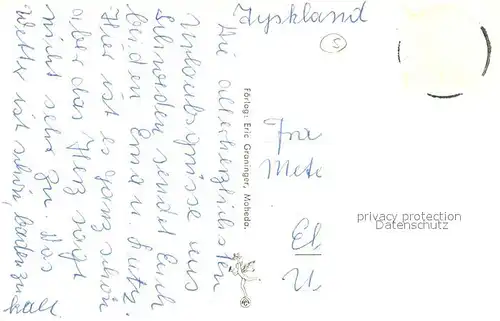 Die allerherzlichsten
Urlaubsgrüsse aus
Schweden sendet Euch
beiden Erna u. Lutz.
Hier ist es ganz schön
aber das Herz sagt
nicht sehr zu. Das
Wetter ist schön, baden zu
kalt
Förlag: Eric Graninger, Moheda.
Tyskland
5
Frau
Mete
El
U
privacy protection
Datenschutz